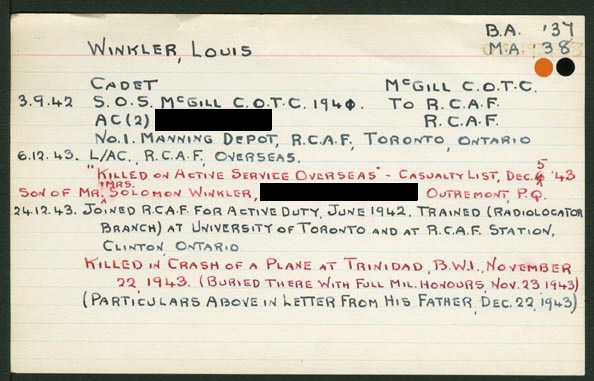 B.A. '37
WINKLER, LOUIS M.A. '38
CADET McGILL C.O.T.C.
3.9.42 S.O.S. McGILL C.O.T.C. 1940. TO R.C.A.F.
AC(2) R.C.A.F.
No.1. MANNING DEPOT, R.C.A.F., TORONTO, ONTARIO
6.12.43. L/AC., R.C.A.F., OVERSEAS.
"KILLED ON ACTIVE SERVICE OVERSEAS" - CASUALTY LIST, DEC. 5 '43
SON OF MR. & MRS. SOLOMON WINKLER, OUTREMONT, P.Q.
24.12.43. JOINED R.C.A.F. FOR ACTIVE DUTY, JUNE 1942. TRAINED (RADIOLOCATOR
BRANCH) AT UNIVERSITY OF TORONTO AND AT R.C.A.F. STATION,
CLINTON, ONTARIO
KILLED IN CRASH OF A PLANE AT TRINIDAD, B.W.I., NOVEMBER
22, 1943. (BURIED THERE WITH FULL MIL. HONOURS, NOV. 23, 1943)
(PARTICULARS ABOVE IN LETTER FROM HIS FATHER, DEC. 22, 1943)